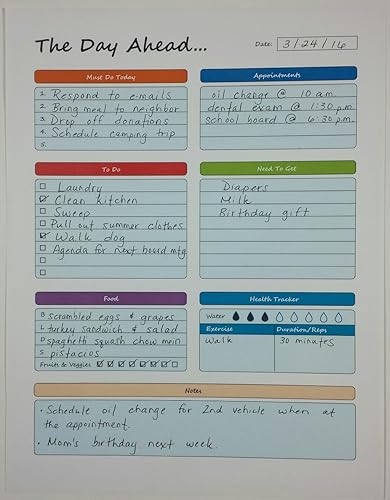 The Day Ahead...
Date: 3/24/16
Must Do Today
1. Respond to e-mails
2. Bring meal to neighbor
3. Drop off donations
4. Schedule camping trip
5.
Appointments
oil change @ 10 am.
dental exam @ 1:30 p.m.
school board @ 6:30 p.m.
To Do
Laundry
Clean kitchen
Sweep
Pull out summer clothes
Walk dog
Agenda for next board mtg
Need To Get
Diapers
Milk
Birthday gift
Food
B scrambled eggs & grapes
L turkey sandwich & salad
D spaghetti squash chow mein
S pistacios
Fruits & Veggies
Health Tracker
Water
Exercise Duration/Reps
Walk 30 minutes
Notes
• Schedule oil change for 2nd vehicle when at
the appointment.
• Mom's birthday next week.